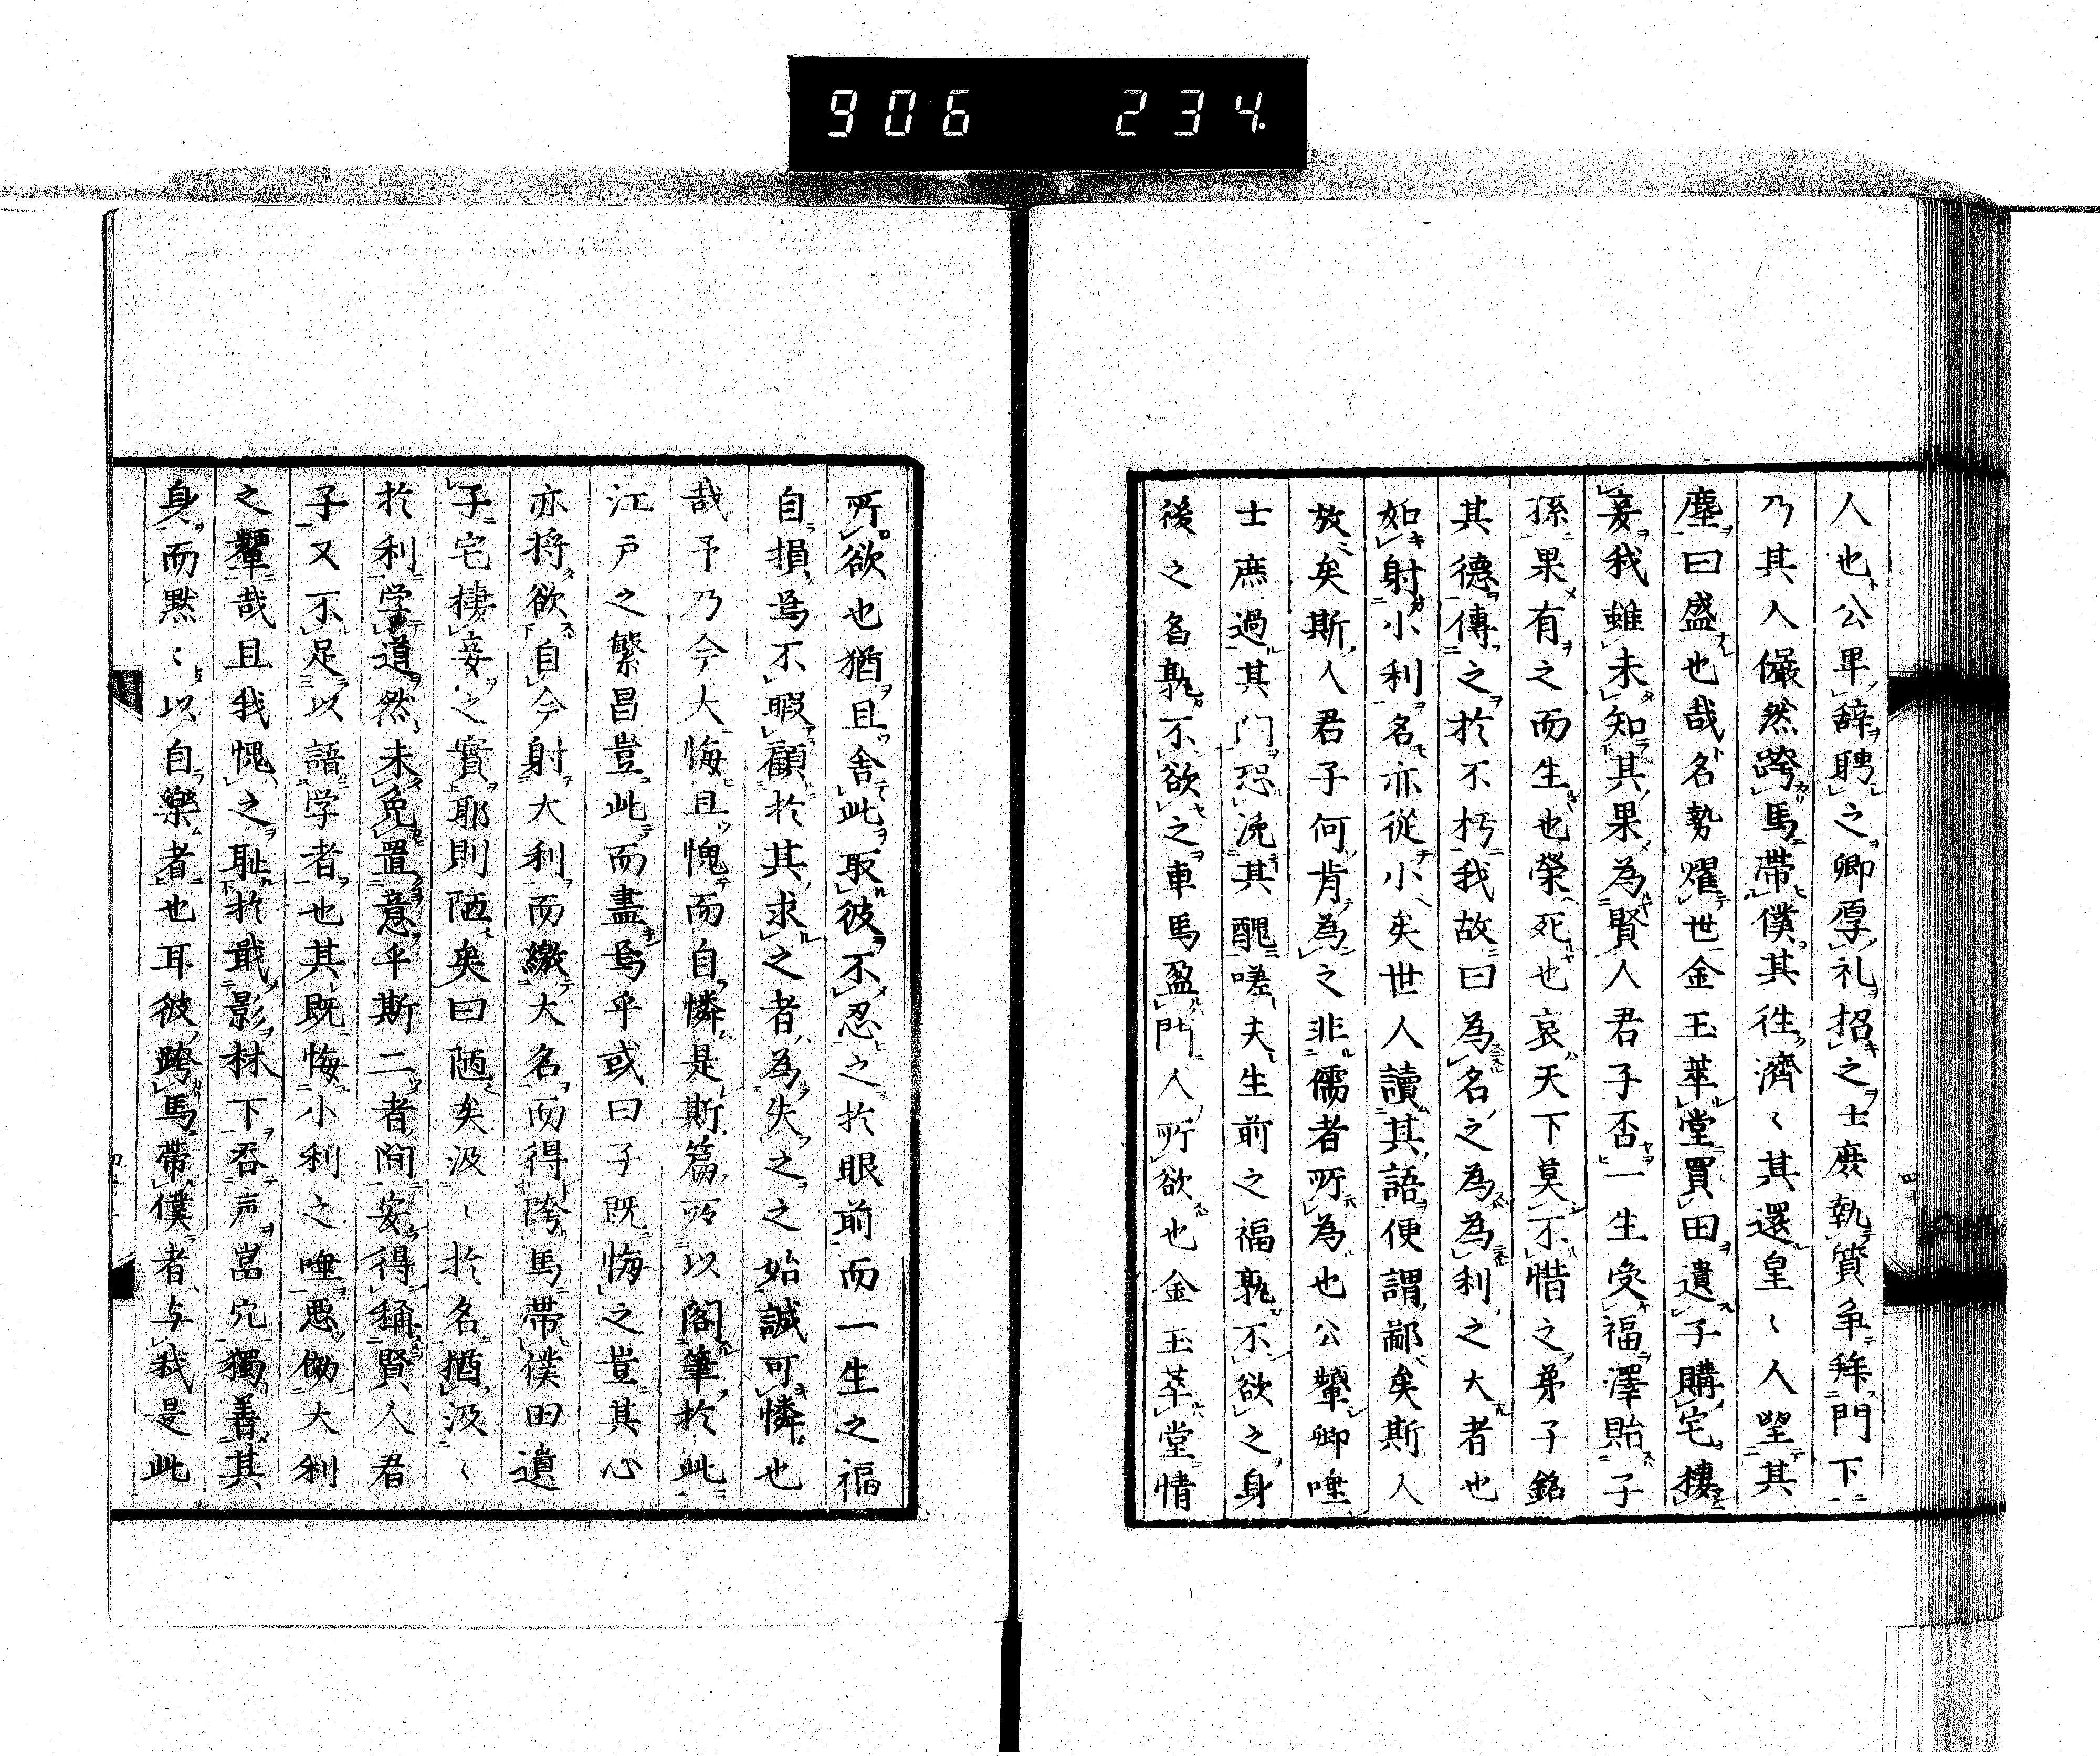 906 234.
人也公卑辞聘之卿厚礼招之士庶執贄争拜門下
乃其人儼然跨馬帯僕其往濟〻其還皇〻人望其
塵曰盛也哉名勢燿世金玉萃堂買田遺子購宅棲
妾我雖未知其果為賢人君子否一生受福澤貽子
孫果有之而生也榮死也哀天下莫不惜之弟子銘
其德傳之於不朽我故曰為名之為為利之大者也
如射小利名亦從小矣世人讀其語便謂鄙矣斯人
放矣斯人君子何肯為之非儒者所為也公顰卿唾
士庶過其門恐浼其醜嗟夫生前之福孰不欲之身
後之名孰不欲之車馬盈門人所欲也金玉萃堂情
所欲也猶且舍此取彼不忍之於眼前而一生之福
自損焉不暇顧於其求之者為失之之始誠可憐也
哉予乃今大悔且愧而自憐是斯篇所以閣筆於此
江戸之繁昌豈此而盡焉乎或曰子既悔之豈其心
亦将欲自今射大利而繳大名而得跨馬帯僕田遺
子宅棲妾之實耶則陋矣曰陋矣汲〻於名猶汲〻
於利学道然未免置意乎斯二者間安得稱賢人君
子又不足以語学者也其既悔小利之唾悪傚大利
之顰哉且我愧之耻於戢影林下呑声嵓穴獨善其
身而黙〻以自樂者也耳彼跨馬帯僕者与我是此